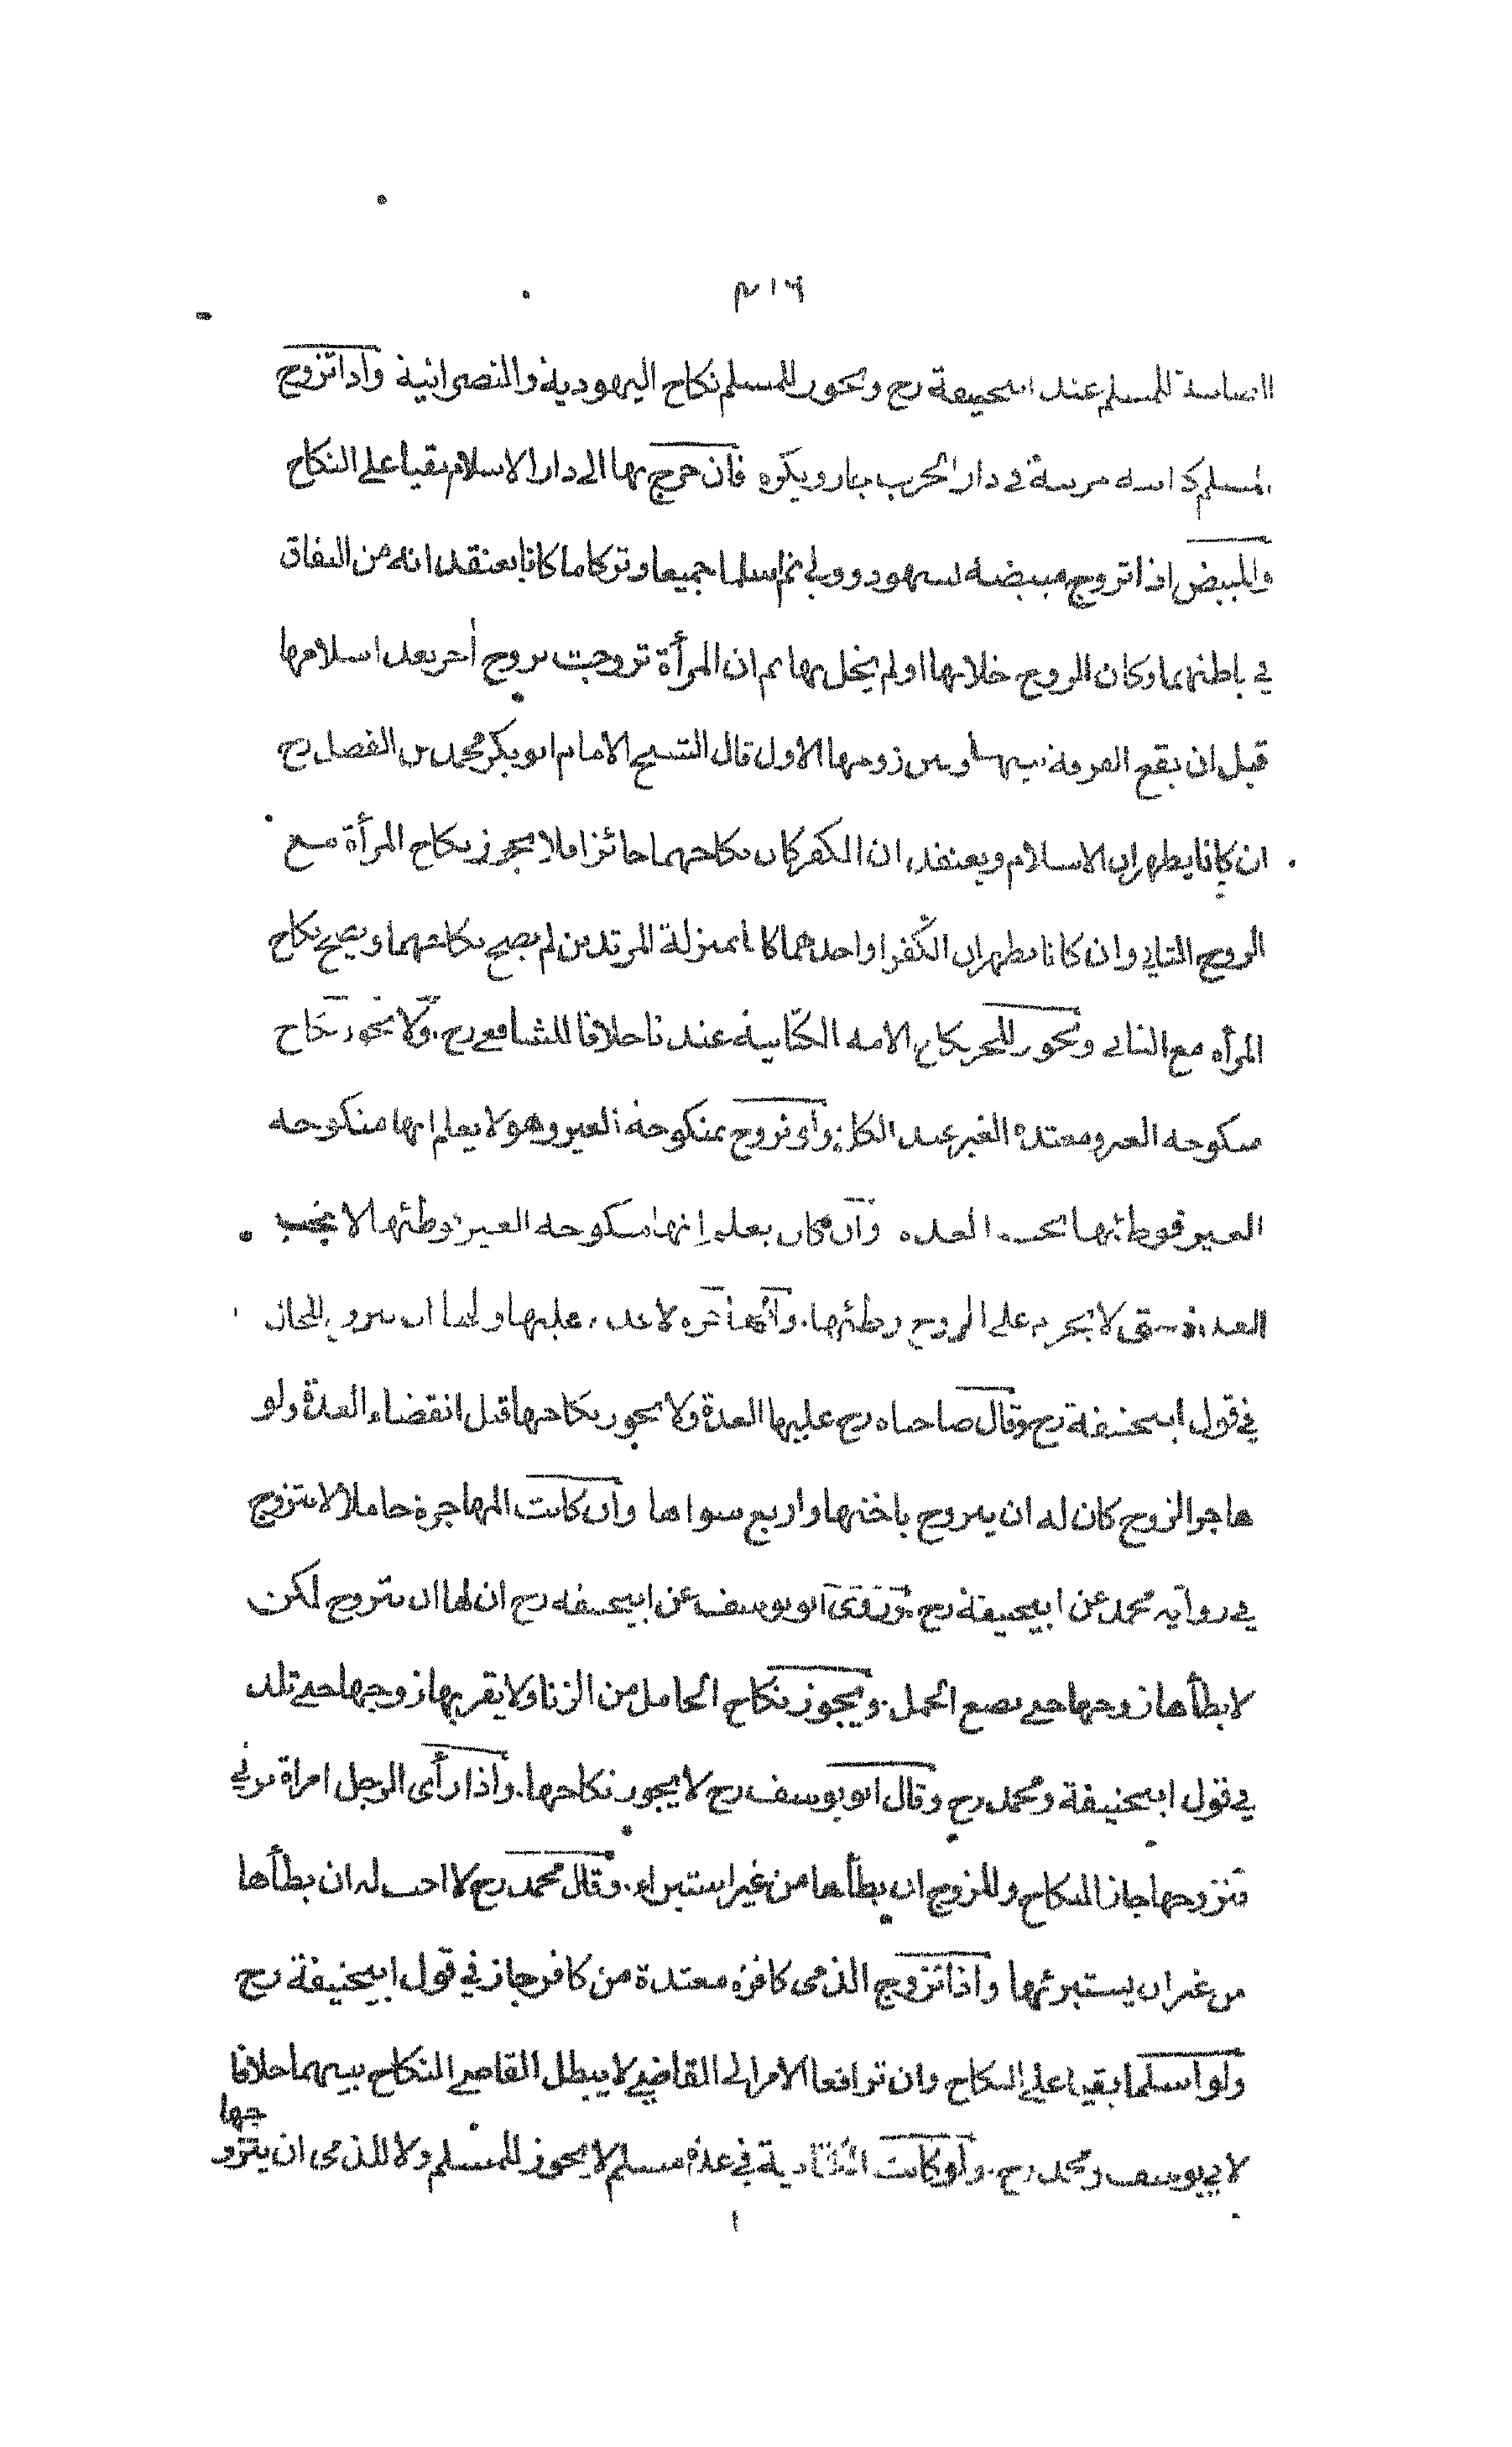 ٣١٦
للمسلم عند ابيحنيفة رح ويجوز للمسلم نكاح اليهودية والنصرانية واذا تزوج
المسلم في دار الحرب جاز ويكره فان خرج بها الى دار الاسلام بقيا على النكاح
والمبيض اذا تزوج مبيضة بشهود وولي ثم اسلما جميعا وتركا ما كانا يعتقدانه من النفاق
في باطنهما وكان الزوج خلا بها او لم يخل بها ثم ان المرأة تزوجت بزوج آخر بعد اسلامها
قبل ان يقع الفرقة بينها وبين زوجها الاول قال الشيخ الامام ابو بكر محمد بن الفضل رح
ان كانا يظهران الاسلام ويعتقدان الكفر كان نكاحهما جائزا فلا يجوز نكاح المرأة مع
الزوج الثاني وان كانا يظهران الكفر او احدهما كانا بمنزلة المرتدين لم يصح نكاحهما ويصح نكاح
المرأة مع الثاني ويجوز للحر نكاح الامة الكتابية عندنا خلافا للشافعي رح ولا يجوز نكاح
منكوحة الغير ومعتدة الغير عند الكل ولو تزوج بمنكوحة الغير وهو لا يعلم انها منكوحة
الغير فوطئها تجب العدة وان كان يعلم انها منكوحة الغير فوطئها لا يجب
العدة حتى لا يحرم على الزوج وطئها لا عدة عليها ولها ان تتزوج للحال
في قول ابيحنيفة رح وقال صاحباه رح عليها العدة ولا يجوز نكاحها قبل انقضاء العدة ولو
هاجر الزوج كان له ان يتزوج باختها واربع سواها وان كانت المهاجرة حاملا لا يتزوج
في رواية محمد عن ابيحنيفة رح وروى ابو يوسف عن ابيحنيفة رح ان لها ان تتزوج لكن
لا يطأها زوجها حتى تضع الحمل ويجوز نكاح الحامل من الزنا ولا يقربها زوجها حتى تلد
في قول ابيحنيفة ومحمد رح وقال ابو يوسف رح لا يجوز نكاحها واذا رأى الرجل امراة تزني
فتزوجها جاز النكاح وللزوج ان يطأها من غير استبراء وقال محمد رح لا احب له ان يطأها
من غير ان يستبرئها واذا تزوج الذمي كافرة معتدة من كافر جاز في قول ابيحنيفة رح
ولو اسلما بقيا على النكاح وان ترافعا الامر الى القاضي لا يبطل القاضي النكاح بينهما خلافا
لابي يوسف ومحمد رح ولو كانت في عدة مسلم لا يجوز للمسلم ولا للذمي ان يتزوجها